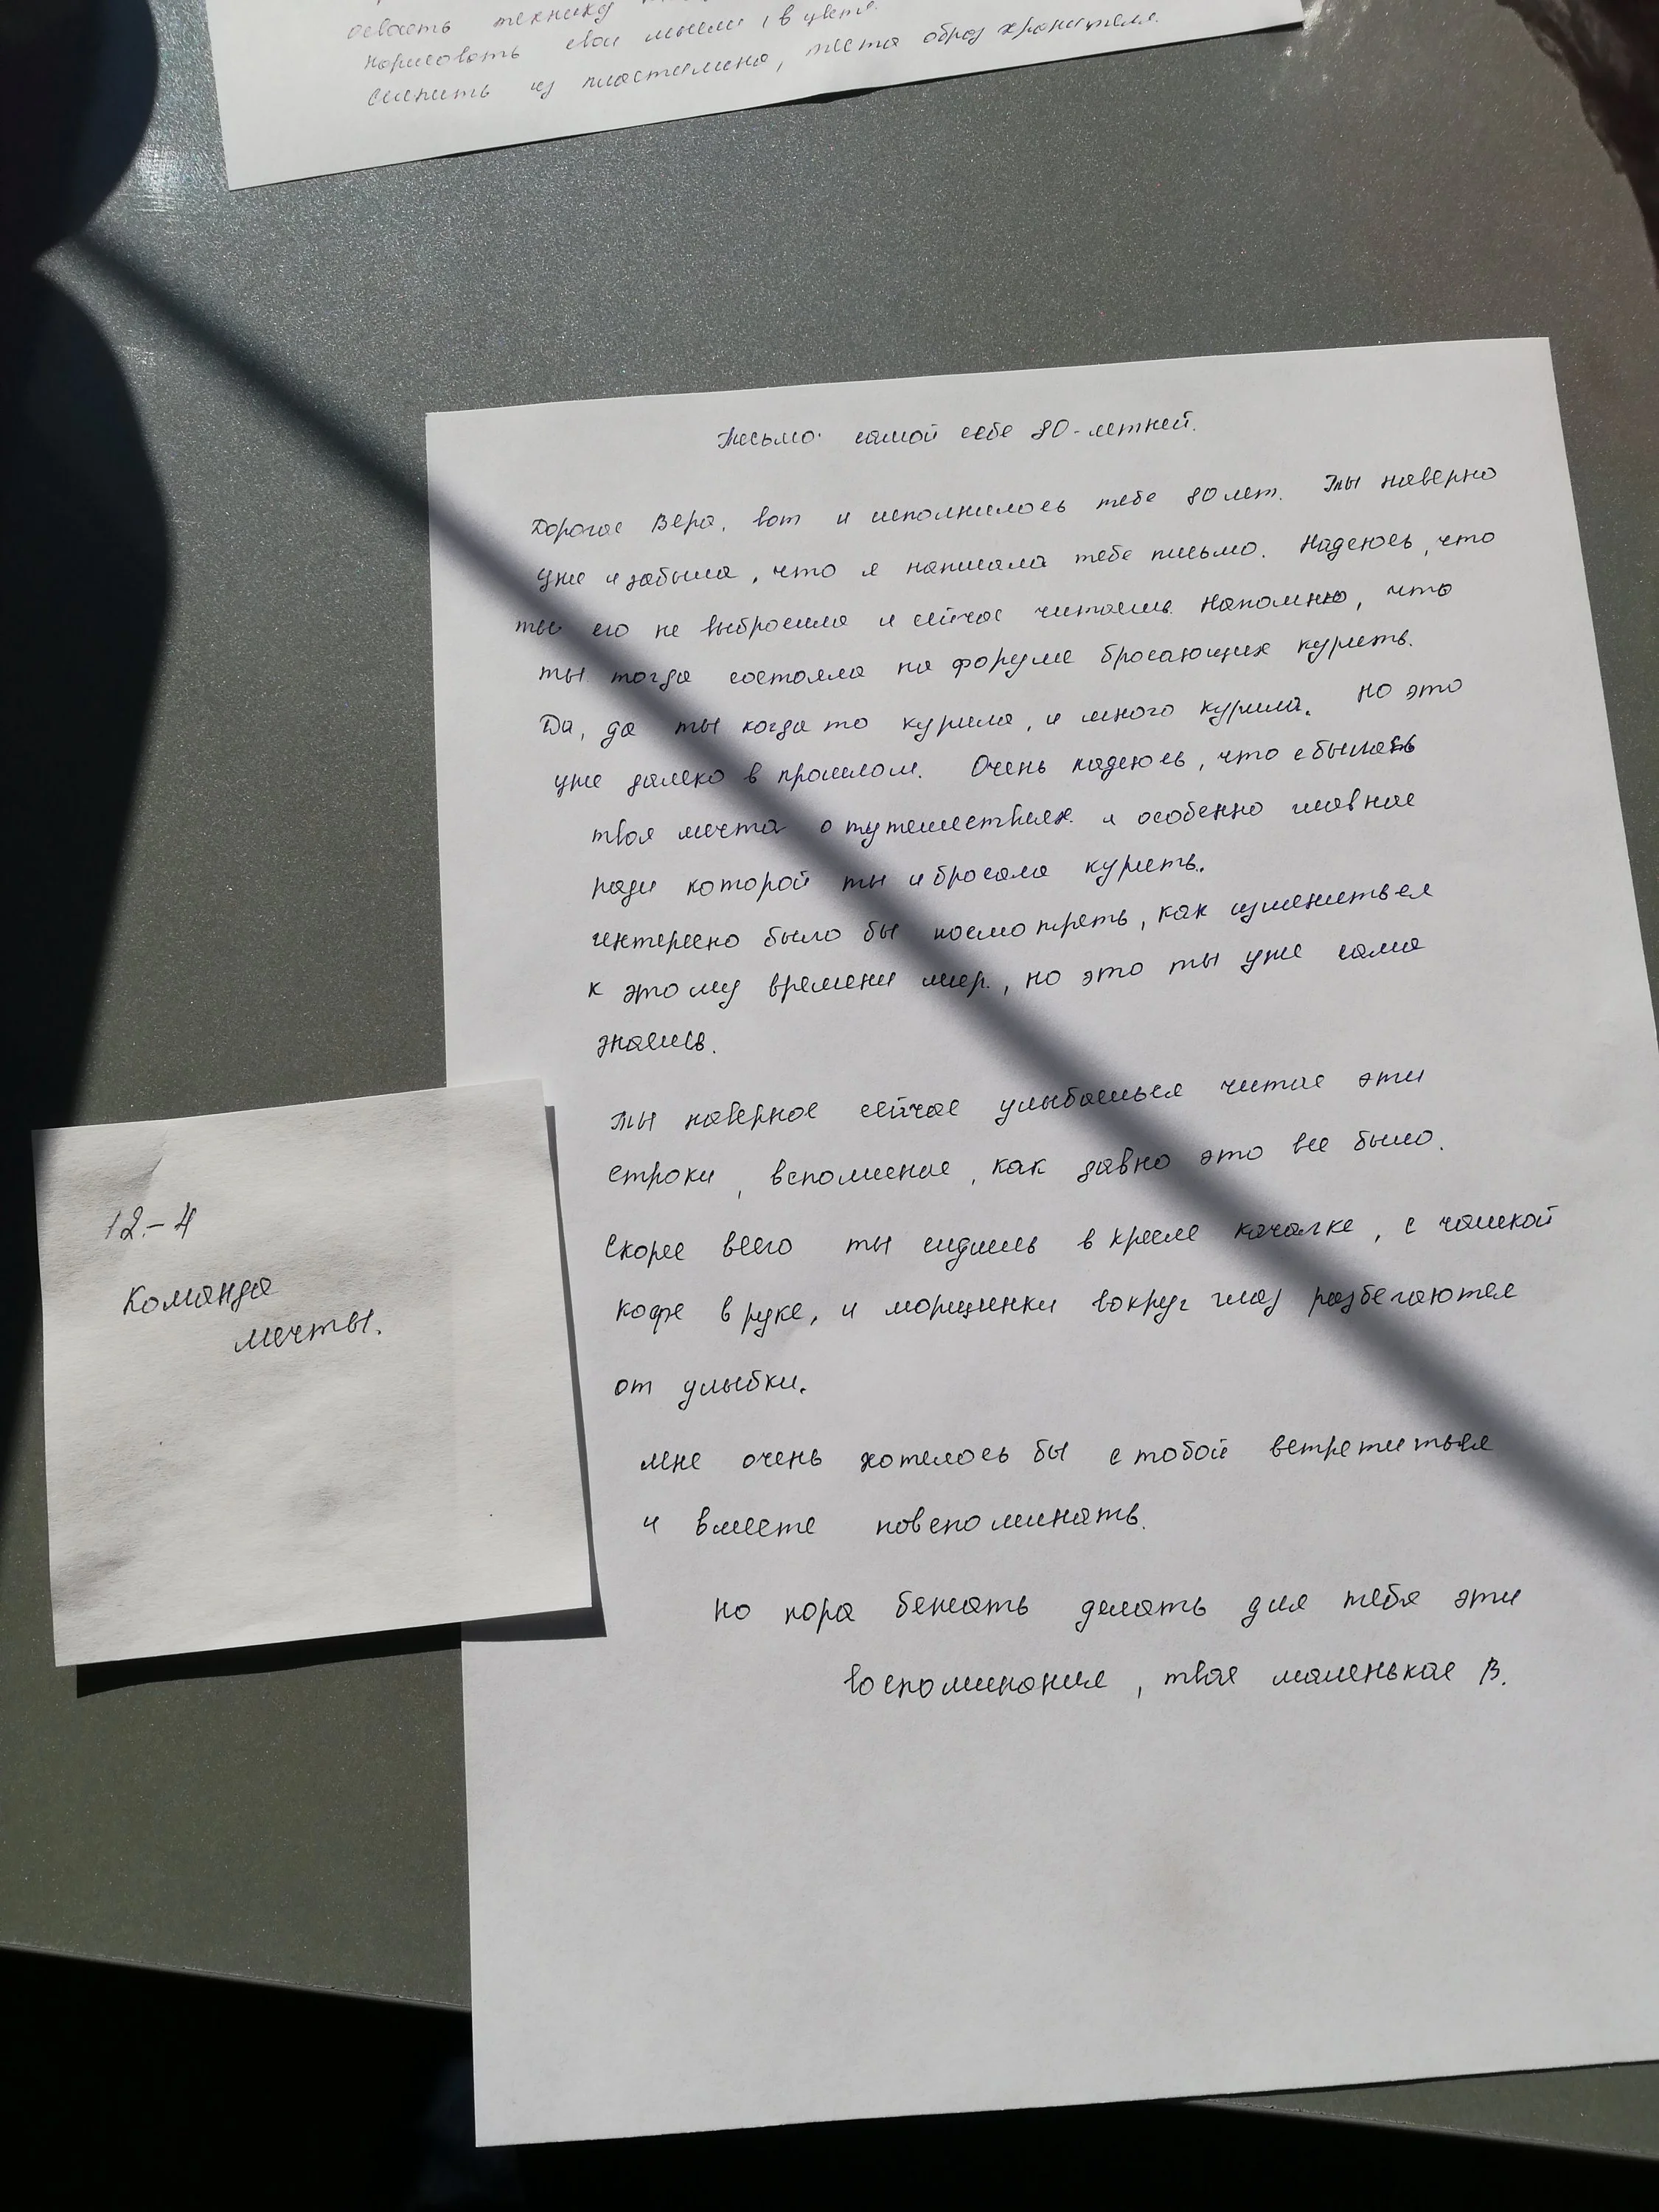 освоить технику
нарисовать свои мысли в цвете.
слепить из пластилина, теста образ хранителя.
Письмо самой себе 80-летней.
Дорогая Вера, вот и исполнилось тебе 80 лет. Ты наверно
уже и забыла, что я написала тебе письмо. Надеюсь, что
ты его не выбросила и сейчас читаешь. Напомню, что
ты тогда состояла на форуме бросающих курить.
Да, да ты когда то курила, и много курила. Но это
уже далеко в прошлом. Очень надеюсь, что сбылась
твоя мечта о путешествиях и особенно главная
ради которой ты и бросала курить.
интересно было бы посмотреть, как измениться
к этому времени мир, но это ты уже сама
знаешь.
Ты наверное сейчас улыбаешься читая эти
строки, вспоминая, как давно это все было.
Скорее всего ты сидишь в кресле качалке, с чашкой
кофе в руке, и морщинки вокруг глаз разбегаются
от улыбки.
мне очень хотелось бы с тобой встретиться
и вместе повспоминать.
Но пора бежать делать для тебя эти
воспоминания, твоя маленькая В.
12.-4
Команда
мечты.